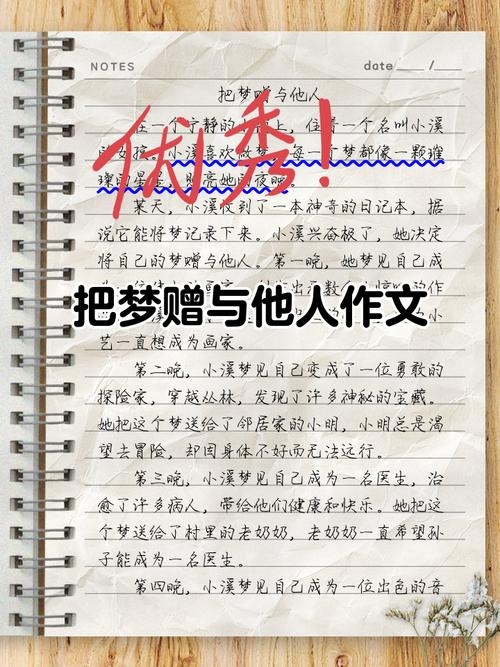 NOTES
date ___ / ___
把梦赠与他人
优秀！
在一个宁静的 上，住着一个名叫小溪
小溪喜欢做梦，每一个梦都像一颗璀
璨的星星，照亮她的夜晚。
某天，小溪收到了一本神奇的日记本，据
说它能将梦记录下来。小溪兴奋极了，她决定
将自己的梦赠与他人。第一晚，她梦见自己成
把梦赠与他人作文
艺一直想成为画家。
第二晚，小溪梦见自己变成了一位勇敢的
探险家，穿越丛林，发现了许多神秘的宝藏。
她把这个梦送给了邻居家的小明，小明总是渴
望去冒险，却因身体不好而无法远行。
第三晚，小溪梦见自己成为一名医生，治
愈了许多病人，带给他们健康和快乐。她把这
个梦送给了村里的老奶奶，老奶奶一直希望孙
子能成为一名医生。
第四晚，小溪梦见自己成为一位出色的音